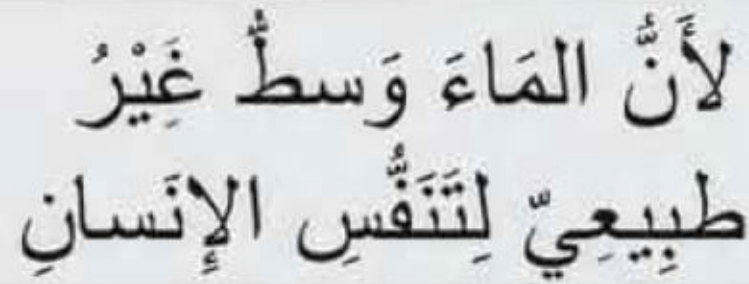 لأَنَّ المَاءَ وَسطٌ غَيْرُ
طبِيعِيّ لِتَنَفُّسِ الإِنَسانِ